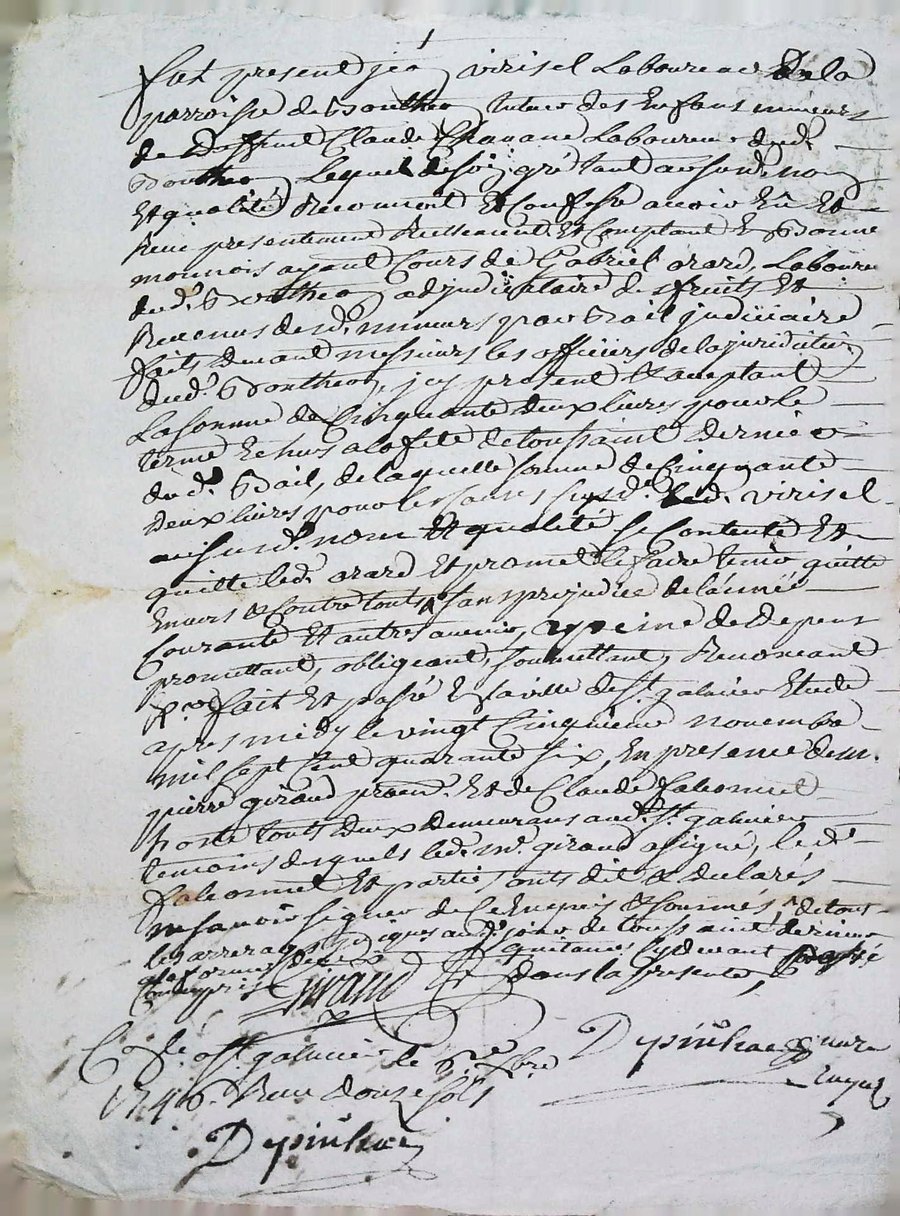 fut present jea virisel Laboureur de la
parroisse de Boutheon tuteur des Enfans mineurs
de deffunt Claude Chavane Laboureur dud.
Boutheon Lequel de son gré tant aususd. nom
Et qualité Reconnoit Et Confesse avoir Eu Et
Receu presentement Reellement Et Comptant En Bonne
monnois ayant Cours de Gabriel orard, Laboureur
dud. Boutheon adjudicataire des fruits Et
Revenus desd. mineurs par Bail judiciaire
faits devant messieurs les officiers de la juridiction
dud. Boutheon, jcy present Et aceptant
La Somme de Cinquante deux livres pour le
terme Echus a la fete de toussaint dernier
dud. Bail, de laquelle somme de Cinquante
deux livres pour les causes susd. led. virisel
aususd. nom Et qualité se Contente Et
quitte led. orard Et promet le faire tenir quitte
Envers & Contre touts sans prejudice de l'année
Courante Et autres avenir, a peine de depens
promettant, obligeant, soumettant, Renonceant
fait Et passé En la ville de St. galmier Etude
apres midy le vingt Cinquieme novembre
mil sept Cent quarante six, En presence de m.
pierre giraud procu. Et de Claude
hoste touts deux demeurans aud. St. galmier
temoins desquels led. mr. giraud a signé, le d.
Et parties onts dit & declarés
ne savoir signer de Ce Enquis & sommés, de tous
les arrerages jusques aud. jour de toussaint dernier
quitances cydevant
Comprises dans la presente,
Giraud
Clé a St. galmier le 6.e Xbre
1746. Receu douze sols
Depinhac
Depinhac